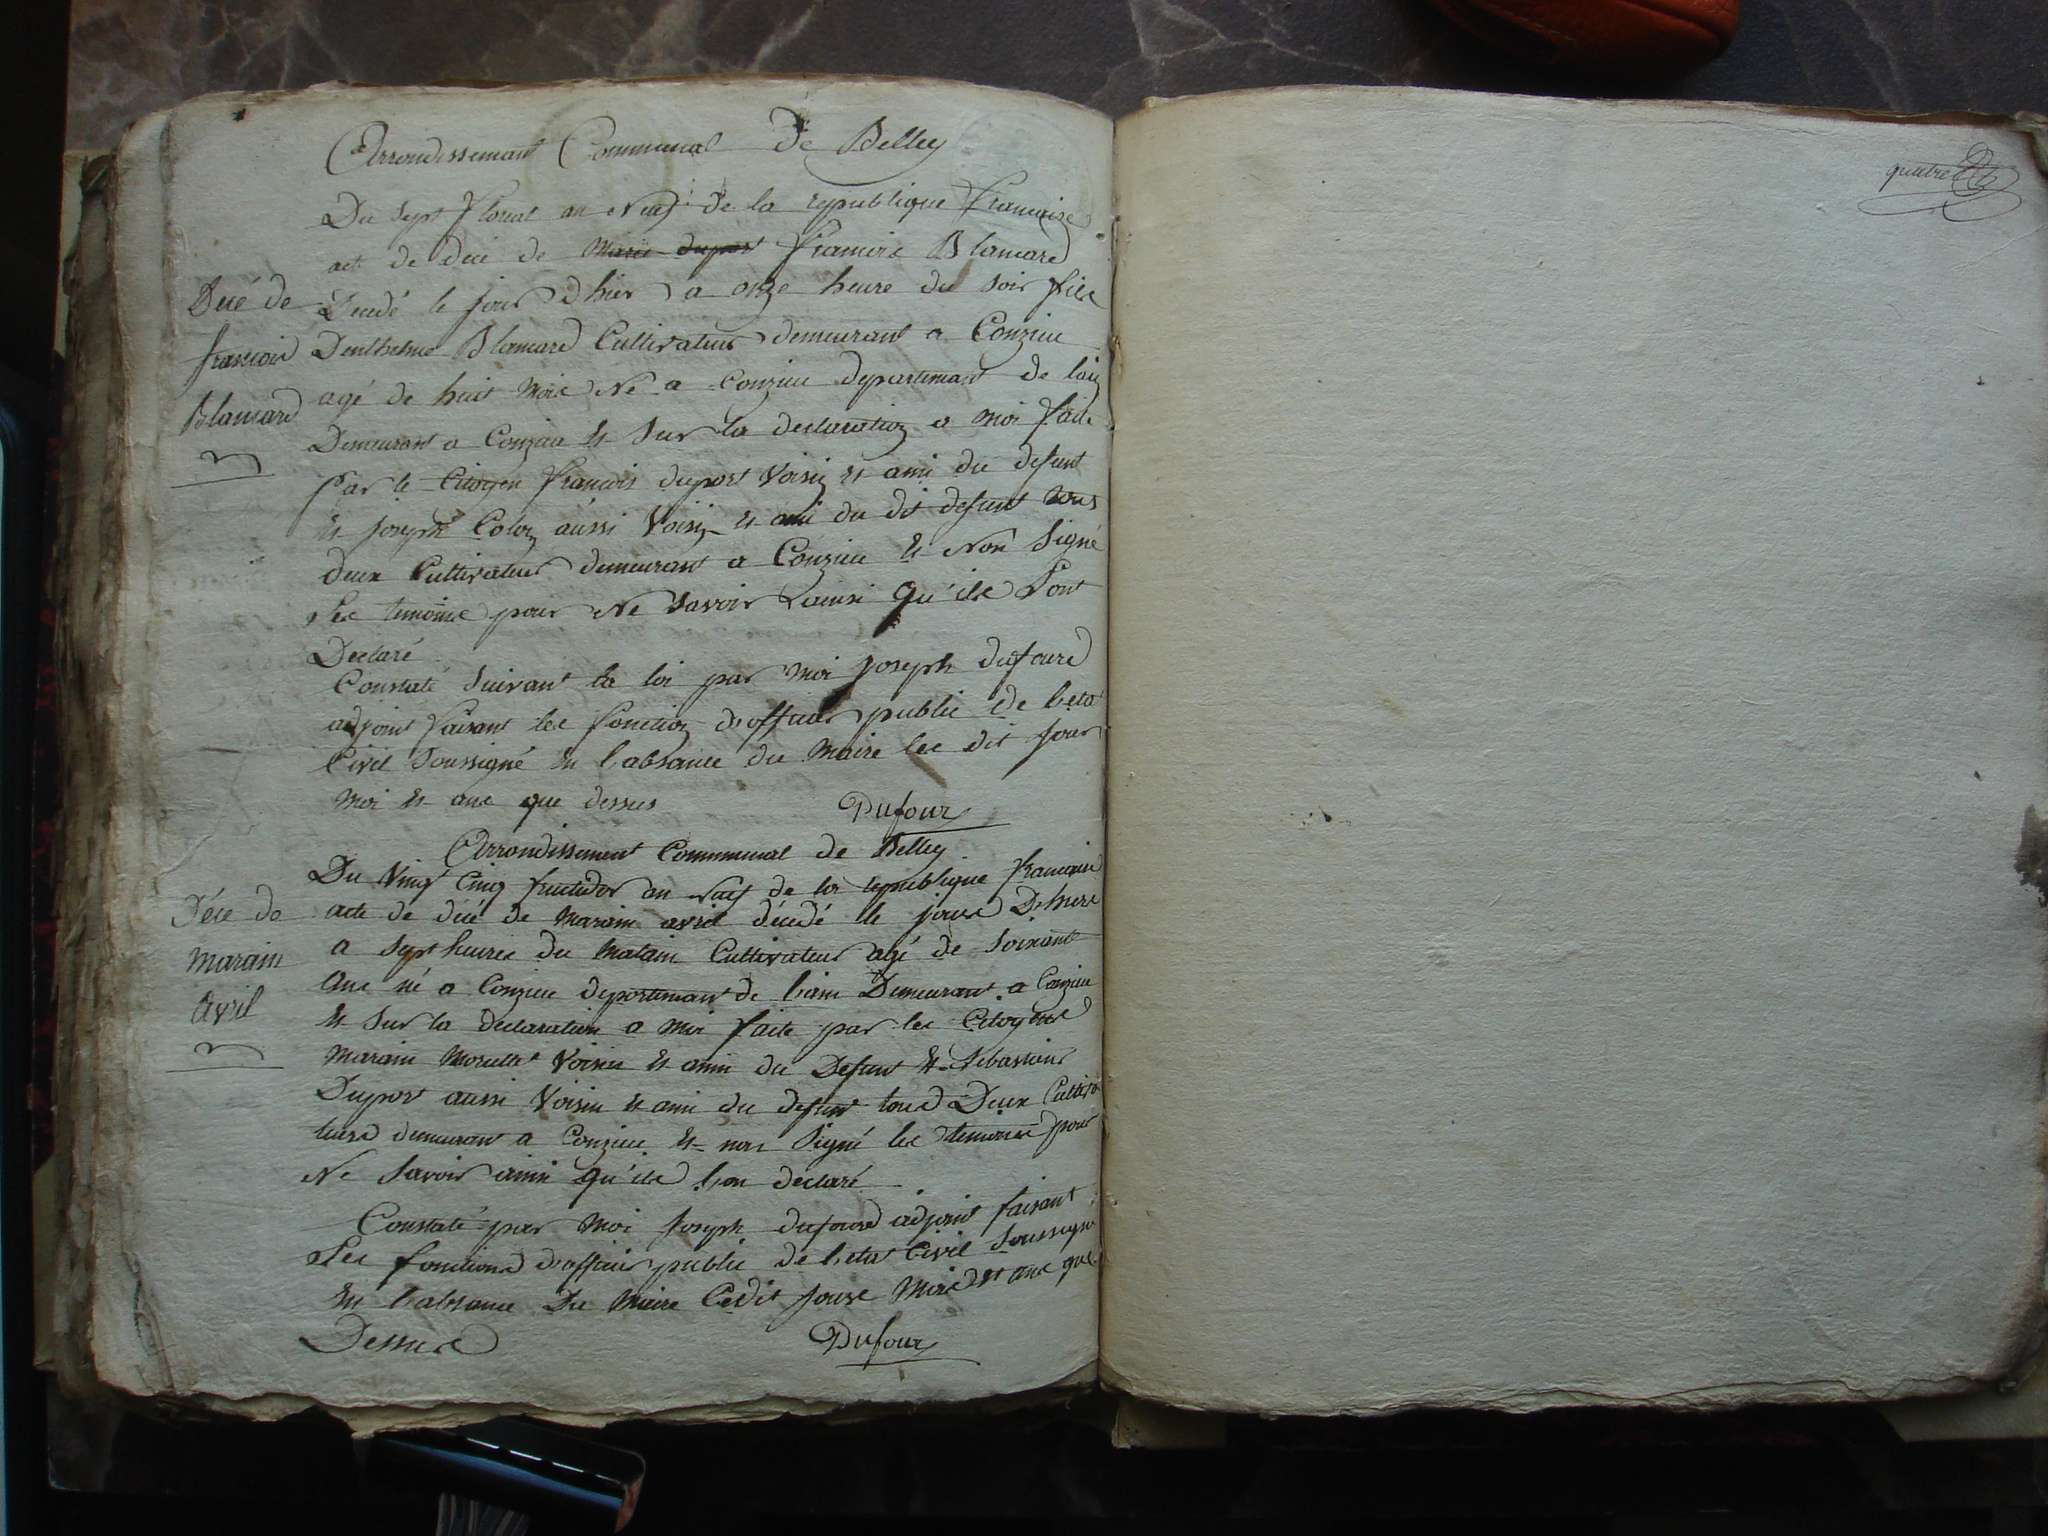 Arrondissement Communal De Belley
Du sept floreal an Neuf de la republique francaise
act de décé de Marie duport francois Blancard
Decedé le jour d'hier a onze heure du soir fils
Danthelme Blancard Cultivateur demeurant a Conzieu
agé de huit mois Né a Conzieu departemant de lain
Demeurant a Conzieu et sur la declaration a moi faite
par le Citoyen francois duport Voisin et ami du defunt
et joseph Colon aussi Voisin et ami du dit defunt tous
deux Cultivateur demeurant a Conzieu et Non signé
les temoins pour Ne savoir ainsi qu'ils l'ont
Declaré
Constaté suivant la loi par moi joseph dufourd
adjoint faisant les fonction d'officier public de letat
Civil soussigné en l'absance du maire les dit jour
moi et ans que dessus
Dufour
Décé de
francois
Blancard
Arrondissement Communal de Belley
Du Vingt Cinq fructidor an neuf de la republique francaise
acte de décé de Marain avril décedé le jours D'hiere
a sept heures du matain Cultivateur agé de soixante
ans né a Conzieu departemant de lain Demeurant a Conzieu
et sur la declaration a moi faite par les Citoyens
marain morellet Voisin et ami du Defunt et sebastien
Duport aussi Voisin et ami du defunt tous Deux Cultiva
teurs demeurant a Conzieu et non signé les temoins pour
Ne savoir ainsi qu'ils lon déclaré
Constaté par moi joseph dufourd adjoint faisant
les fonctions d'officier public de letat Civil soussigné
en l'absance Du Maire Cedit jours Mois et ans que
Dessus
Dufour
Décé de
Marain
avril
quatre